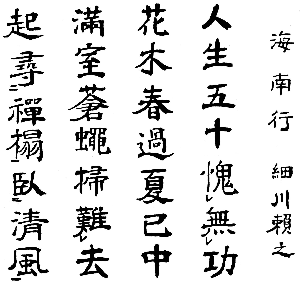 海南行 細川頼之
人生五十愧無功
花木春過夏已中
滿室蒼蠅掃難去
起尋禪榻臥清風